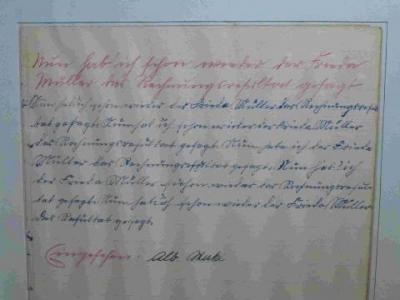 Nun hab' ich schon wieder der Frieda
Müller das Rechnungsresultat gesagt
Nun hab ich schon wieder der Frieda Müller das Rechnungsresul
tat gesagt. Nun hab ich schon wieder der Frieda Müller
das Rechnungsresultat gesagt. Nun hab ich der Frieda
Müller das Rechnungsresultat gesagt. Nun hab ich
der Frieda Müller schon wieder das Rechnungsresul
tat gesagt. Nun hab ich schon wieder der Frieda Müller
das Resultat gesagt.
Eingesehen. Alb.